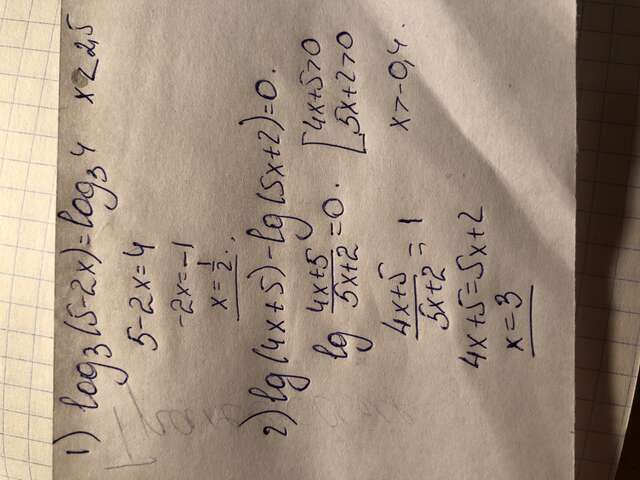 1) log₃(5-2x)=log₃4   x<2,5
5-2x=4
-2x=-1
x=1/2.
2) lg(4x+5)-lg(5x+2)=0.
lg (4x+5)/(5x+2)=0.   [4x+5>0
5x+2>0
(4x+5)/(5x+2)=1   x>-0,4.
4x+5=5x+2
x=3